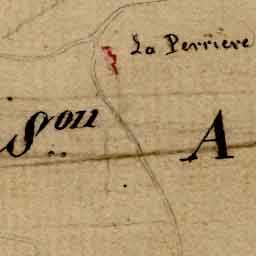 La Perriere
S^on A